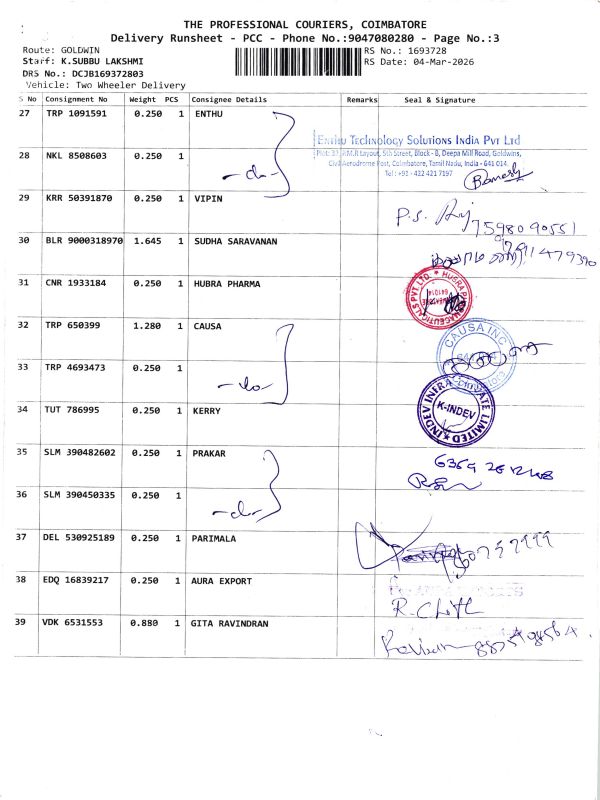 THE PROFESSIONAL COURIERS, COIMBATORE
Delivery Runsheet - PCC - Phone No.:9047080280 - Page No.:3
Route: GOLDWIN
RS No.: 1693728
Staff: K.SUBBU LAKSHMI
RS Date: 04-Mar-2026
DRS No.: DCJB169372803
Vehicle: Two Wheeler Delivery
S No Consignment No Weight PCS Consignee Details Remarks Seal & Signature
27 TRP 1091591 0.250 1 ENTHU
ENTHU TECHNOLOGY SOLUTIONS INDIA PVT LTD
Plot: 37, P.M.R Layout, 5th Street, Block - B, Deepa Mill Road, Goldwins,
Civil Aerodrome Post, Coimbatore, Tamil Nadu, India - 641 014.
Tel : +91 - 422 421 7197
28 NKL 8508603 0.250 1 -do-
Ramesh
29 KRR 50391870 0.250 1 VIPIN
P.S.
7598090551
30 BLR 9000318970 1.645 1 SUDHA SARAVANAN
31 CNR 1933184 0.250 1 HUBRA PHARMA
HUBRA PHARMACEUTICALS PVT. LTD.
641014
32 TRP 650399 1.280 1 CAUSA
CAUSA INC
33 TRP 4693473 0.250 1 -do-
34 TUT 786995 0.250 1 KERRY
K-INDEV
35 SLM 390482602 0.250 1 PRAKAR
36 SLM 390450335 0.250 1 -do-
37 DEL 530925189 0.250 1 PARIMALA
38 EDQ 16839217 0.250 1 AURA EXPORT
39 VDK 6531553 0.880 1 GITA RAVINDRAN